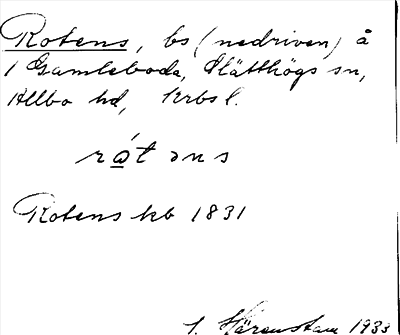 Rotens, bs (nedriven) å
1 Gamleboda, Slätthögs sn,
Allbo hd, Krbs l.
rót əns
Rotens kb 1831
I. Härenstam 1933